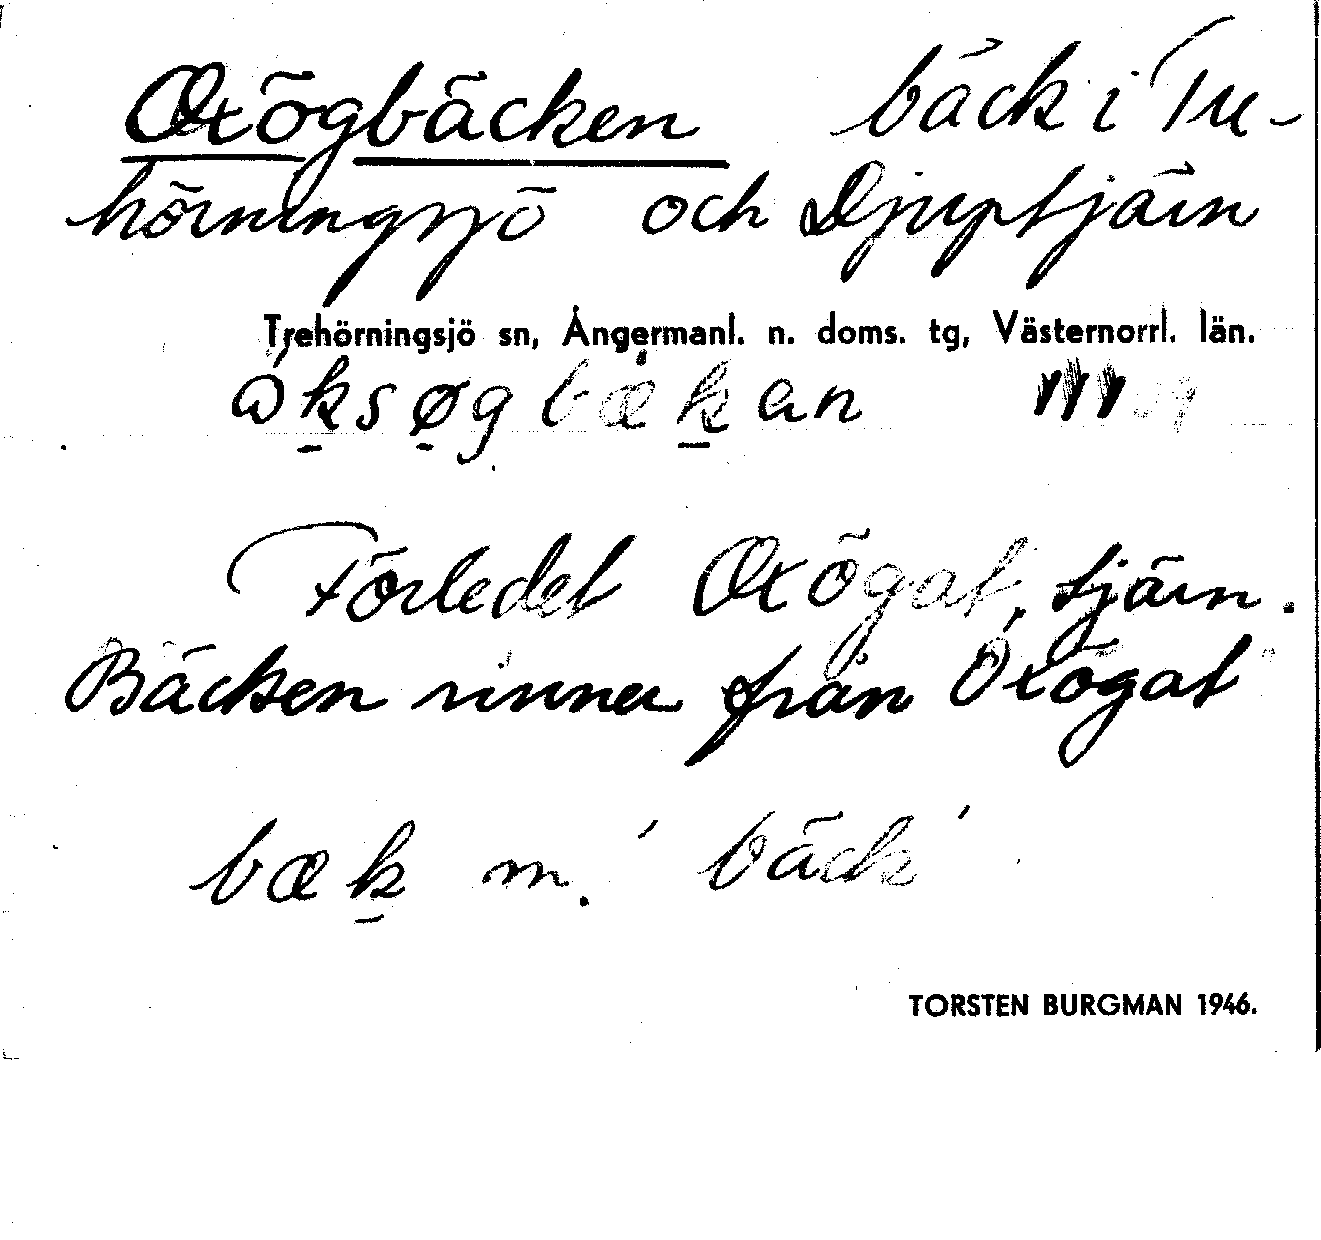 Oxögbäcken bäck i Tre-
hörningsjö och Djuptjärn
Trehörningsjö sn, Ångermanl. n. doms. tg, Västernorrl. län.
Förledet Oxögat, tjärn.
Bäcken rinner från Oxögat
bæk m. ' bäck '
TORSTEN BURGMAN 1946.